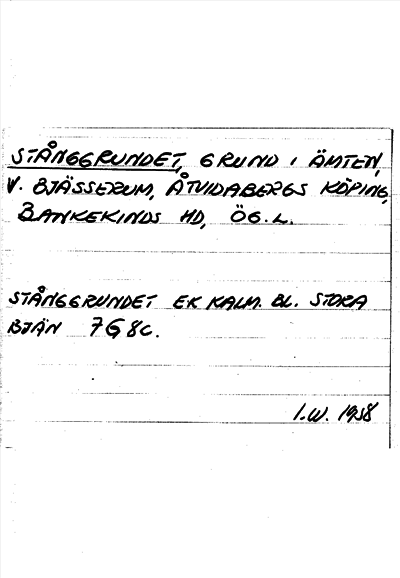 STÅNGGRUNDET, GRUND I ÄMTEN,
V. BJÄSSERUM, ÅTVIDABERGS KÖPING,
BANKEKINDS HD, ÖG. L.
STÅNGGRUNDET EK KALM. BL. STORA
BJÄN 7G8C.
I.W. 1958